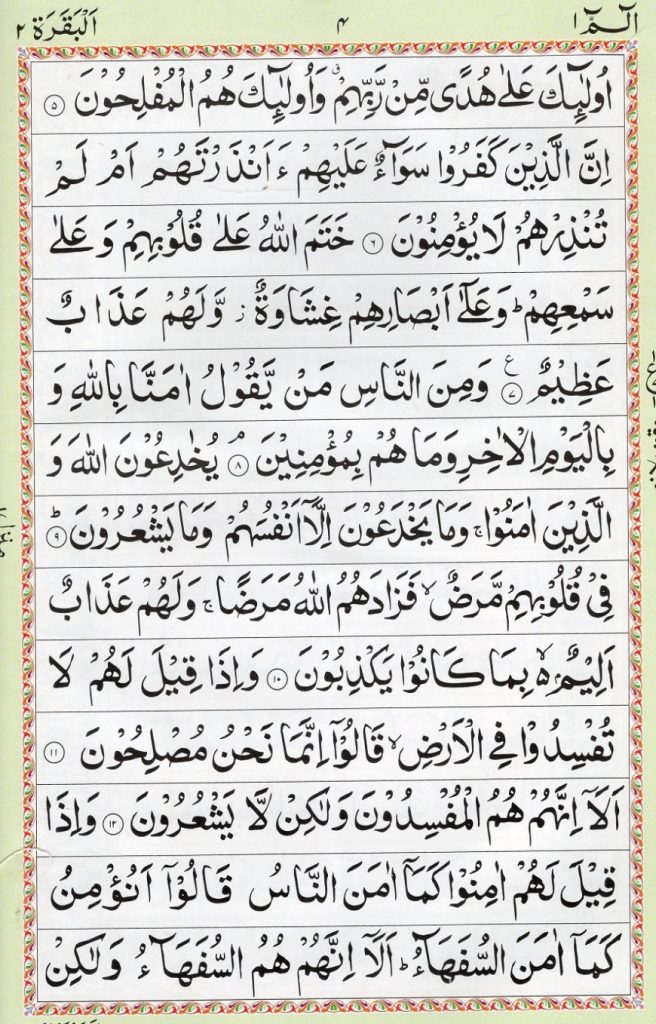 الٓمّٓ ١ ٤ اَلْبَقَرَة ٢
اُولٰٓئِكَ عَلٰى هُدًى مِّنْ رَّبِّهِمْ ۙ وَاُولٰٓئِكَ هُمُ الْمُفْلِحُوْنَ ۝٥
اِنَّ الَّذِيْنَ كَفَرُوْا سَوَآءٌ عَلَيْهِمْ ءَاَنْذَرْتَهُمْ اَمْ لَمْ
تُنْذِرْهُمْ لَا يُؤْمِنُوْنَ ۝٦ خَتَمَ اللّٰهُ عَلٰى قُلُوْبِهِمْ وَ عَلٰى
سَمْعِهِمْ ؕ وَعَلٰٓى اَبْصَارِهِمْ غِشَاوَةٌ ز وَّلَهُمْ عَذَابٌ
عَظِيْمٌ ۝٧ ع وَمِنَ النَّاسِ مَنْ يَّقُوْلُ اٰمَنَّا بِاللّٰهِ وَ
بِالْيَوْمِ الْاٰخِرِ وَمَا هُمْ بِمُؤْمِنِيْنَ ۝٨ۘ يُخٰدِعُوْنَ اللّٰهَ وَ
الَّذِيْنَ اٰمَنُوْا ۚ وَمَا يَخْدَعُوْنَ اِلَّآ اَنْفُسَهُمْ وَمَا يَشْعُرُوْنَ ۝٩ؕ
فِيْ قُلُوْبِهِمْ مَّرَضٌ ۙ فَزَادَهُمُ اللّٰهُ مَرَضًا ۚ وَلَهُمْ عَذَابٌ
اَلِيْمٌۢ ۙ۬ بِمَا كَانُوْا يَكْذِبُوْنَ ۝١٠ وَاِذَا قِيْلَ لَهُمْ لَا
تُفْسِدُوْا فِي الْاَرْضِ ۙ قَالُوْٓا اِنَّمَا نَحْنُ مُصْلِحُوْنَ ۝١١
اَلَآ اِنَّهُمْ هُمُ الْمُفْسِدُوْنَ وَلٰكِنْ لَّا يَشْعُرُوْنَ ۝١٢ وَاِذَا
قِيْلَ لَهُمْ اٰمِنُوْا كَمَآ اٰمَنَ النَّاسُ قَالُوْٓا اَنُؤْمِنُ
كَمَآ اٰمَنَ السُّفَهَآءُ ؕ اَلَآ اِنَّهُمْ هُمُ السُّفَهَآءُ وَلٰكِنْ